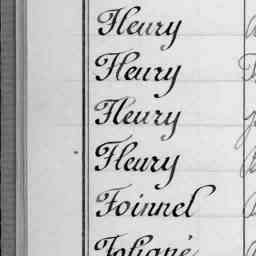 Fleury
Fleury
Fleury
Fleury
Foinnel
Foliané